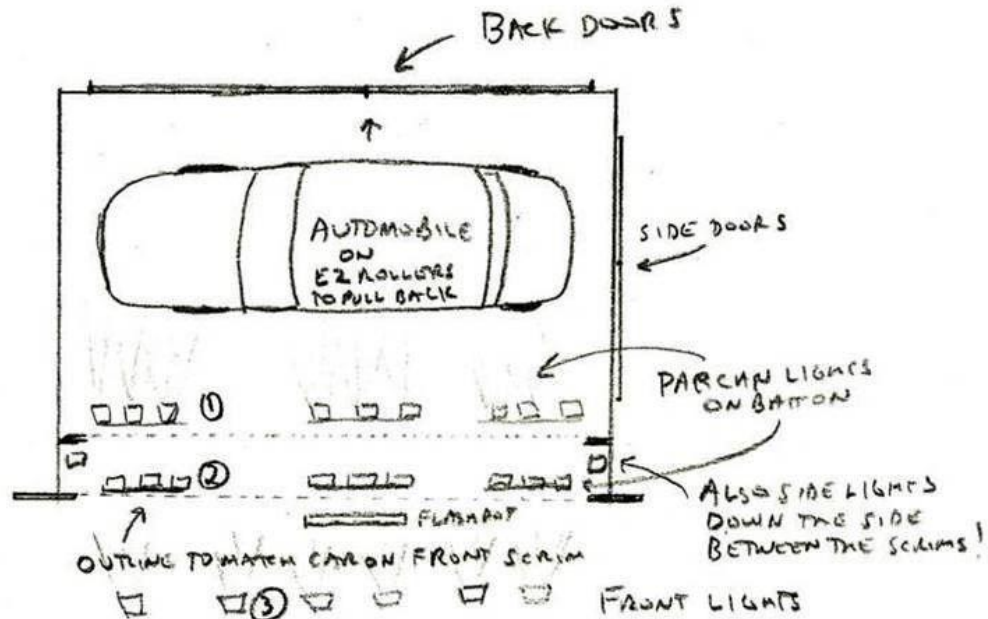 BACK DOORS
AUTOMOBILE
ON
EZ ROLLERS
TO PULL BACK
SIDE DOORS
PARCAN LIGHTS
ON BATTON
①
②
ALSO SIDE LIGHTS
DOWN THE SIDE
BETWEEN THE SCRIMS!
FLASHPOT
OUTLINE TO MATCH CAR ON FRONT SCRIM
③
FRONT LIGHTS